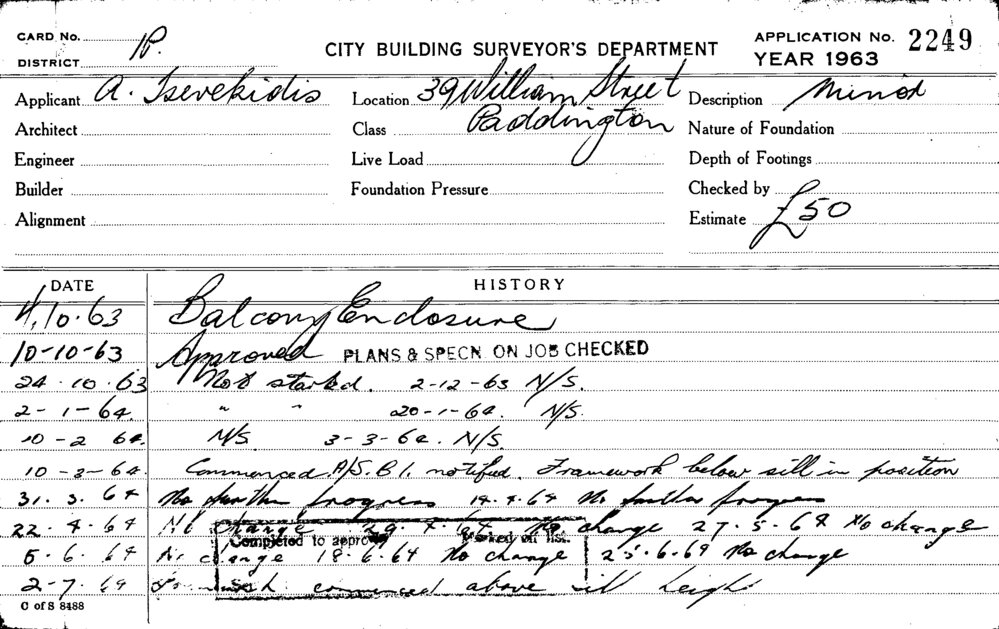 CARD No.
DISTRICT P.
CITY BUILDING SURVEYOR'S DEPARTMENT
APPLICATION No. 2249
YEAR 1963
Applicant A. Tsevekidis
Location 39 William Street
Description Minor
Architect
Class Paddington
Nature of Foundation
Engineer
Live Load
Depth of Footings
Builder
Foundation Pressure
Checked by
Alignment
Estimate £50
DATE HISTORY
4.10.63 Balcony Enclosure
10-10-63 Approved PLANS & SPECN. ON JOB CHECKED
24.10.63 Not started. 2-12-63 N/S.
2-1-64. " " 20-1-64. N/S.
10-2 64. N/S. 3-3-64. N/S.
10-3-64. Commenced. A/S.B I. notified. Framework below sill in position
31.3.64 No further progress 14.4.64 No further progress
22.4.64 No change 29.4.64 No change 27.5.64 No change
Completed to approved worked off list.
5.6.64 No change 18.6.64 No change 25.6.64 No change
2-7.64 commenced above sill height
C of S 8488